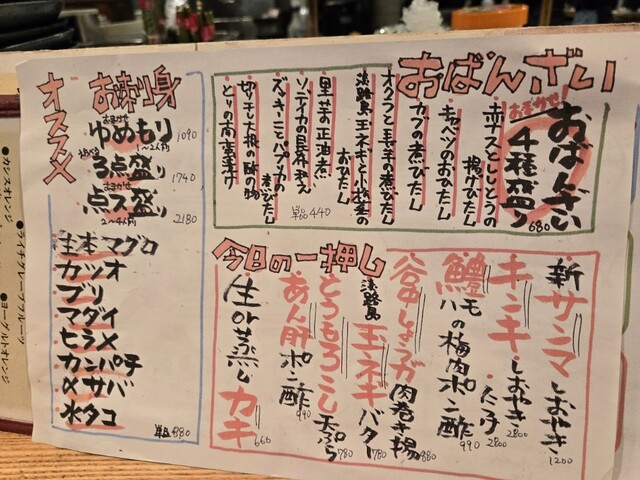 おばんざい
おまかせ!
おばんざい
4種盛り
680
赤ナスとししとうの
揚げびたし
キャベツのおひたし
カブの煮びたし
オクラと長芋の煮びたし
淡路島玉ネギと小松菜の
おひたし
里芋の正油煮
ズッキーニとパプリカの
煮びたし
切干し大根の酢の物
とりの南蛮漬け
単品 440
オススメ
お刺身
おまかせ
ゆめもり
1~2人前
1090
3点盛り
1740
おまかせ
点盛り
2~4人前
2180
生本マグロ
カツオ
ブリ
マダイ
ヒラメ
カンパチ
〆サバ
水タコ
単品 880
今日の一押し
新サンマ
しおやき
1200
キンキ
しおやき 2800
2800
鱧
ハモの梅肉ポン酢
990
谷中しょうが
肉巻き揚
880
淡路島
玉ネギ
バター
780
とうもろこし
天ぷら
780
あん肝
ポン酢
990
生or蒸し
カキ
660
●カシスオレンジ
●ライチグレープフルーツ
●ヨーグルトオレンジ